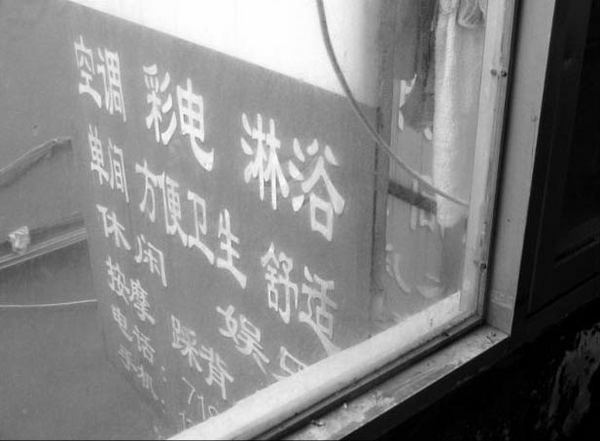 空调 彩电 淋浴
单间 方便卫生 舒适
休闲 娱
按摩 踩背 足
电话：718
手机：